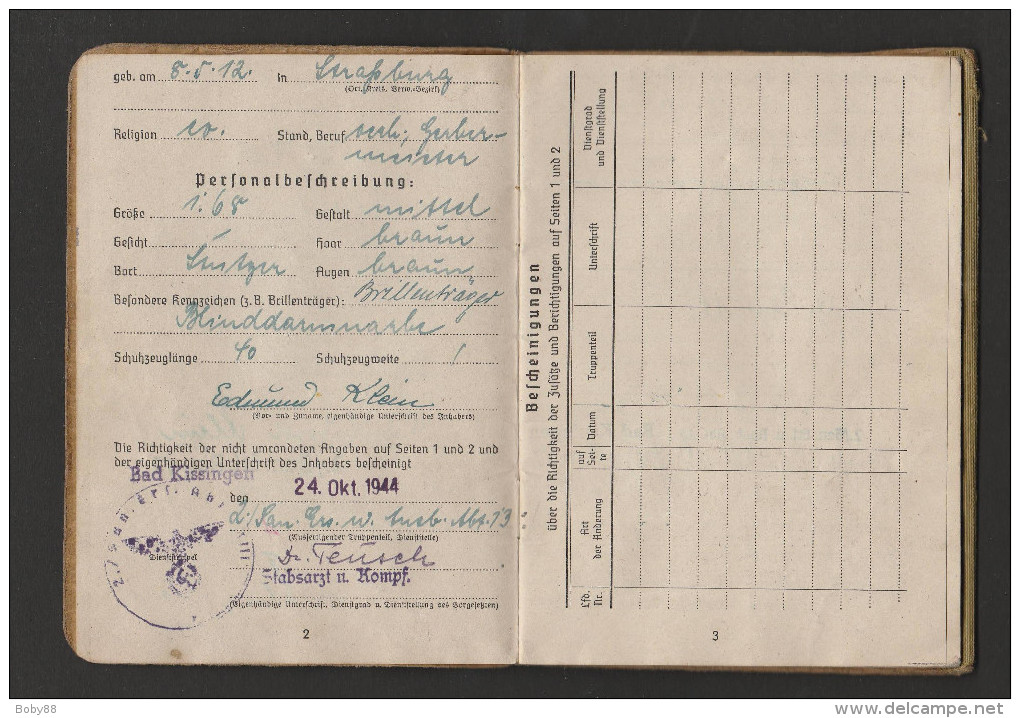 geb. am 8.5.12. in Straßburg
(Ort, Kreis, Verw.-Bezirk)
Religion ev. Stand, Beruf verh., Gerber-
meister
Personalbeschreibung:
Größe 1.68 Gestalt mittel
Gesicht Haar braun
Bart Augen braun
Besondere Kennzeichen (z.B. Brillenträger): Brillenträger
Blinddarmnarbe
Schuhzeuglänge 40 Schuhzeugweite
Edmund Klein
(Vor- und Zuname, eigenhändige Unterschrift des Inhabers)
Die Richtigkeit der nicht umrandeten Angaben auf Seiten 1 und 2 und
der eigenhändigen Unterschrift des Inhabers bescheinigt
Bad Kissingen den 24. Okt. 1944
2./San. Ers. u. Ausb. Abt. 13
(Ausfertigender Truppenteil, Dienststelle)
Dienststempel
Dr. Teusch
Stabsarzt u. Kompf.
(Eigenhändige Unterschrift, Dienstgrad u. Dienststellung des Vorgesetzten)
2
Bescheinigungen
über die Richtigkeit der Zusätze und Berichtigungen auf Seiten 1 und 2
Lfd. Nr.
Art der Änderung
auf Sei-
te
Datum
Truppenteil
Unterschrift
Dienstgrad
und Dienststellung
3
Boby88
www.delcampe.net